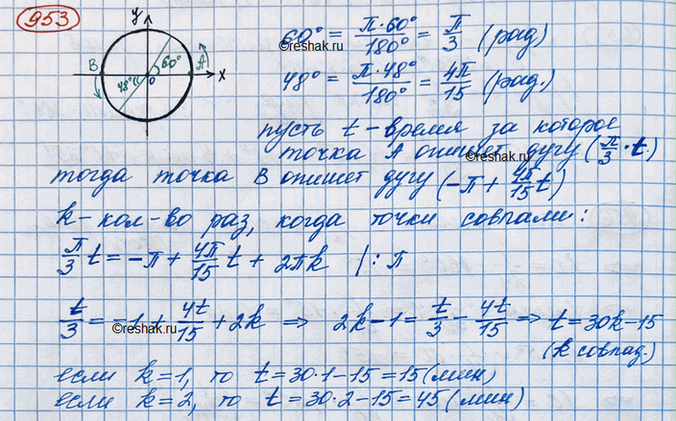 953
y
B 60° A
48° 0 x
60° = π·60°/180° = π/3 (рад)
©reshak.ru
48° = π·48°/180° = 4π/15 (рад.)
пусть t - время за которое
точка A опишет дугу (π/3·t)
©reshak.ru
тогда точка B опишет дугу (-π + 4π/15 t)
k - кол-во раз, когда точки совпали:
π/3 t = -π + 4π/15 t + 2πk | : π
t/3 = -1 + 4t/15 + 2k ⇒ 2k-1 = t/3 - 4t/15 ⇒ t = 30k-15
©reshak.ru
(k совпад.)
если k=1, то t = 30·1-15 = 15 (мин)
если k=2, то t = 30·2-15 = 45 (мин)